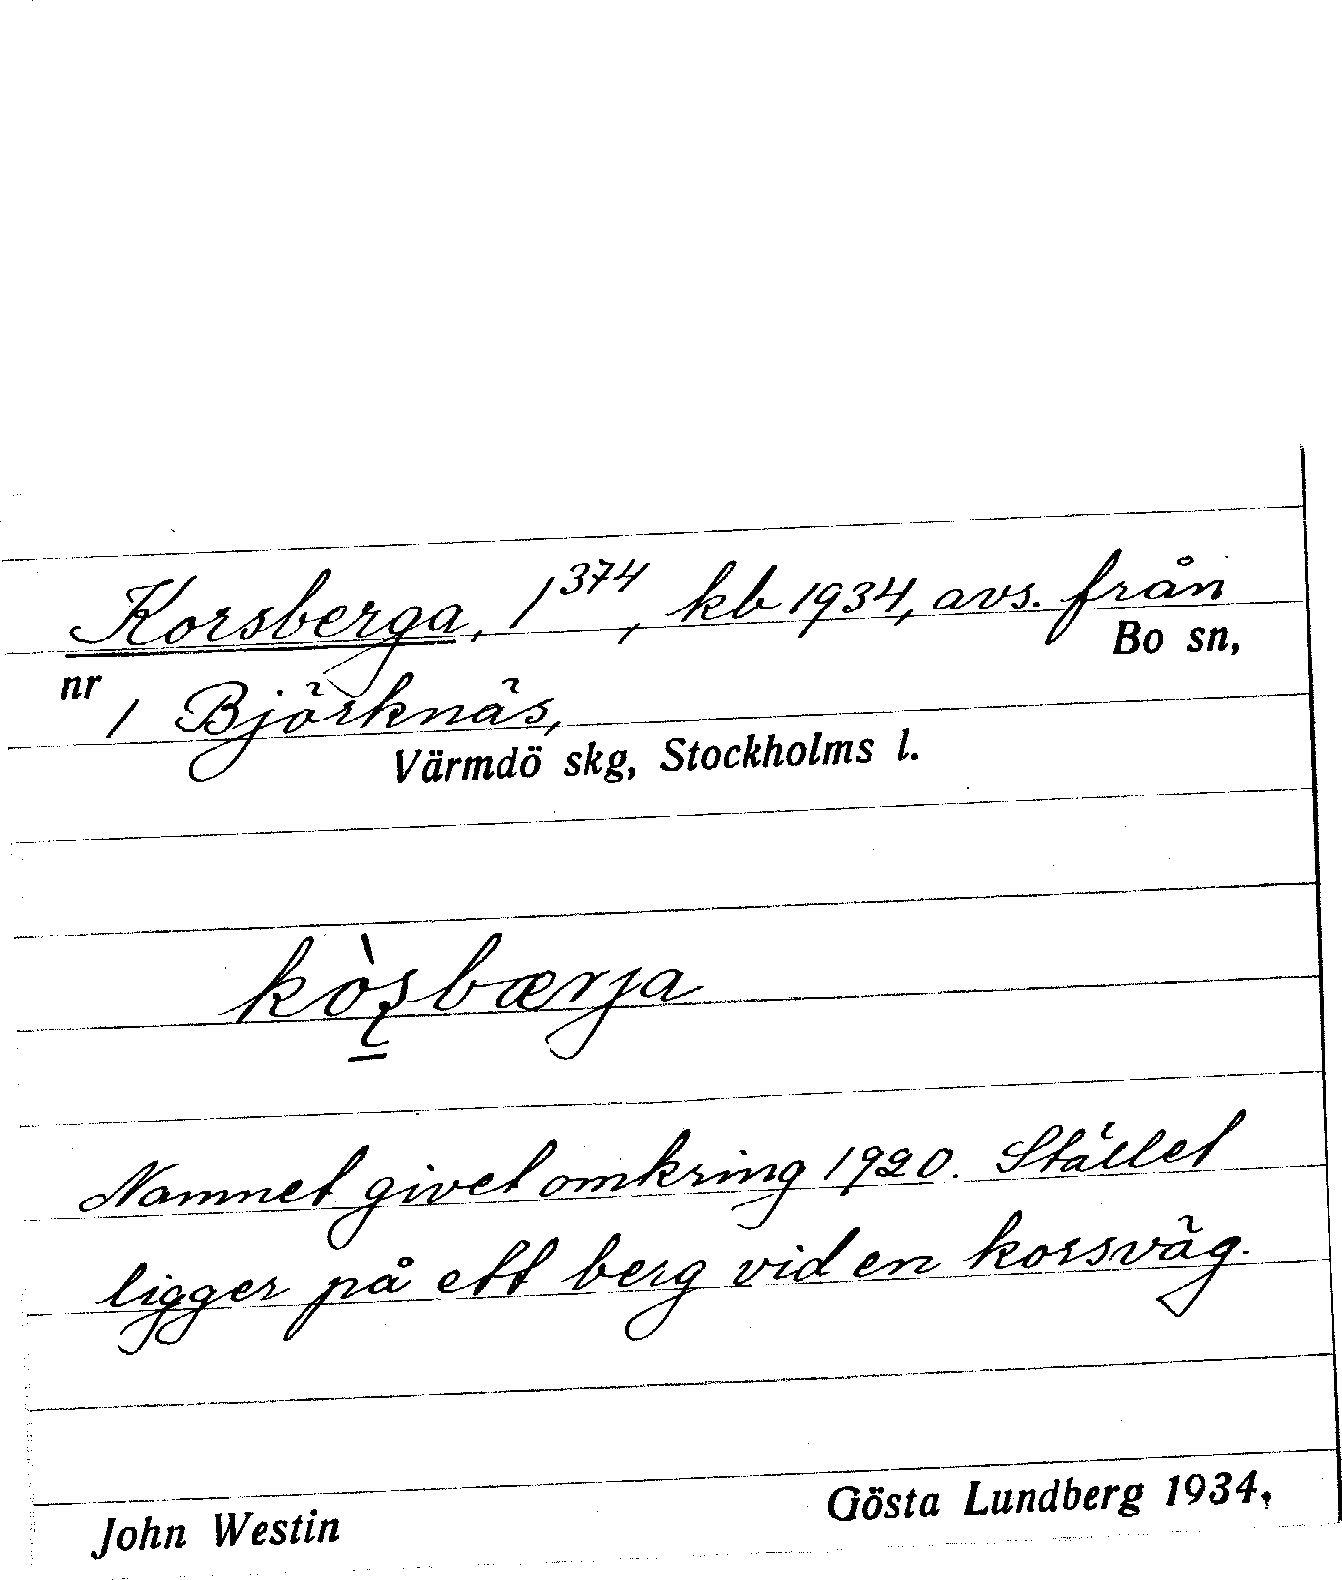 Korsberga, 1³⁷⁴, kb 1934, avs. från
Bo sn,
nr 1 Björknäs,
Värmdö skg, Stockholms l.
kòʂbærja
Namnet givet omkring 1920. Stället
ligger på ett berg vid en korsväg.
John Westin Gösta Lundberg 1934.